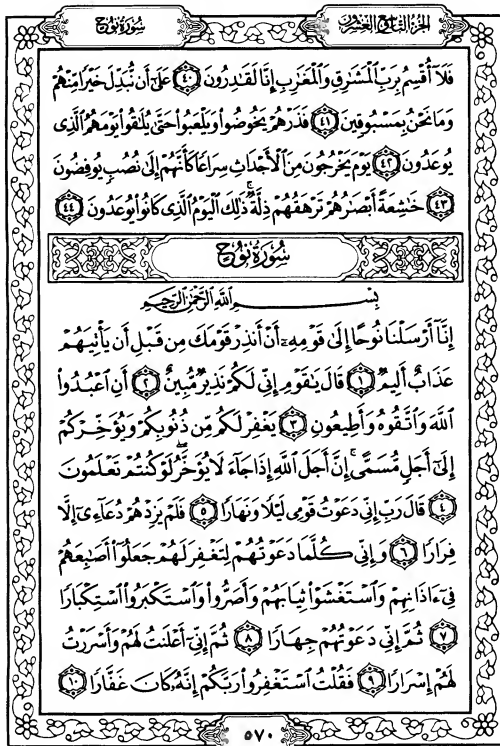 الجزء التاسع والعشرون
سُورَةُ نُوحٍ
فَلَآ أُقْسِمُ بِرَبِّ ٱلْمَشَٰرِقِ وَٱلْمَغَٰرِبِ إِنَّا لَقَٰدِرُونَ ﴿٤٠﴾ عَلَىٰٓ أَن نُّبَدِّلَ خَيْرًا مِّنْهُمْ
وَمَا نَحْنُ بِمَسْبُوقِينَ ﴿٤١﴾ فَذَرْهُمْ يَخُوضُوا۟ وَيَلْعَبُوا۟ حَتَّىٰ يُلَٰقُوا۟ يَوْمَهُمُ ٱلَّذِى
يُوعَدُونَ ﴿٤٢﴾ يَوْمَ يَخْرُجُونَ مِنَ ٱلْأَجْدَاثِ سِرَاعًا كَأَنَّهُمْ إِلَىٰ نُصُبٍ يُوفِضُونَ
﴿٤٣﴾ خَٰشِعَةً أَبْصَٰرُهُمْ تَرْهَقُهُمْ ذِلَّةٌ ۚ ذَٰلِكَ ٱلْيَوْمُ ٱلَّذِى كَانُوا۟ يُوعَدُونَ ﴿٤٤﴾
سُورَةُ نُوحٍ
بِسْمِ ٱللَّهِ ٱلرَّحْمَٰنِ ٱلرَّحِيمِ
إِنَّآ أَرْسَلْنَا نُوحًا إِلَىٰ قَوْمِهِۦٓ أَنْ أَنذِرْ قَوْمَكَ مِن قَبْلِ أَن يَأْتِيَهُمْ
عَذَابٌ أَلِيمٌ ﴿١﴾ قَالَ يَٰقَوْمِ إِنِّى لَكُمْ نَذِيرٌ مُّبِينٌ ﴿٢﴾ أَنِ ٱعْبُدُوا۟
ٱللَّهَ وَٱتَّقُوهُ وَأَطِيعُونِ ﴿٣﴾ يَغْفِرْ لَكُم مِّن ذُنُوبِكُمْ وَيُؤَخِّرْكُمْ
إِلَىٰٓ أَجَلٍ مُّسَمًّى ۚ إِنَّ أَجَلَ ٱللَّهِ إِذَا جَآءَ لَا يُؤَخَّرُ ۖ لَوْ كُنتُمْ تَعْلَمُونَ
﴿٤﴾ قَالَ رَبِّ إِنِّى دَعَوْتُ قَوْمِى لَيْلًا وَنَهَارًا ﴿٥﴾ فَلَمْ يَزِدْهُمْ دُعَآءِىٓ إِلَّا
فِرَارًا ﴿٦﴾ وَإِنِّى كُلَّمَا دَعَوْتُهُمْ لِتَغْفِرَ لَهُمْ جَعَلُوٓا۟ أَصَٰبِعَهُمْ
فِىٓ ءَاذَانِهِمْ وَٱسْتَغْشَوْا۟ ثِيَابَهُمْ وَأَصَرُّوا۟ وَٱسْتَكْبَرُوا۟ ٱسْتِكْبَارًا
﴿٧﴾ ثُمَّ إِنِّى دَعَوْتُهُمْ جِهَارًا ﴿٨﴾ ثُمَّ إِنِّىٓ أَعْلَنتُ لَهُمْ وَأَسْرَرْتُ
لَهُمْ إِسْرَارًا ﴿٩﴾ فَقُلْتُ ٱسْتَغْفِرُوا۟ رَبَّكُمْ إِنَّهُۥ كَانَ غَفَّارًا ﴿١٠﴾
٥٧٠